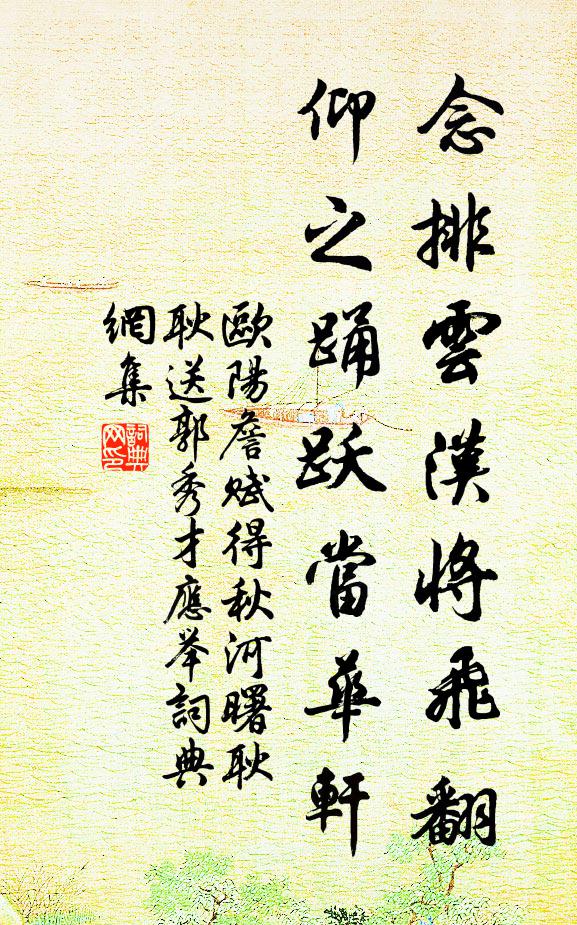 念排雲漢將飛翻
仰之踊躍當華軒
歐陽詹賦得秋河曙耿
耿送郭秀才應举詞典
網集
詞典
网印